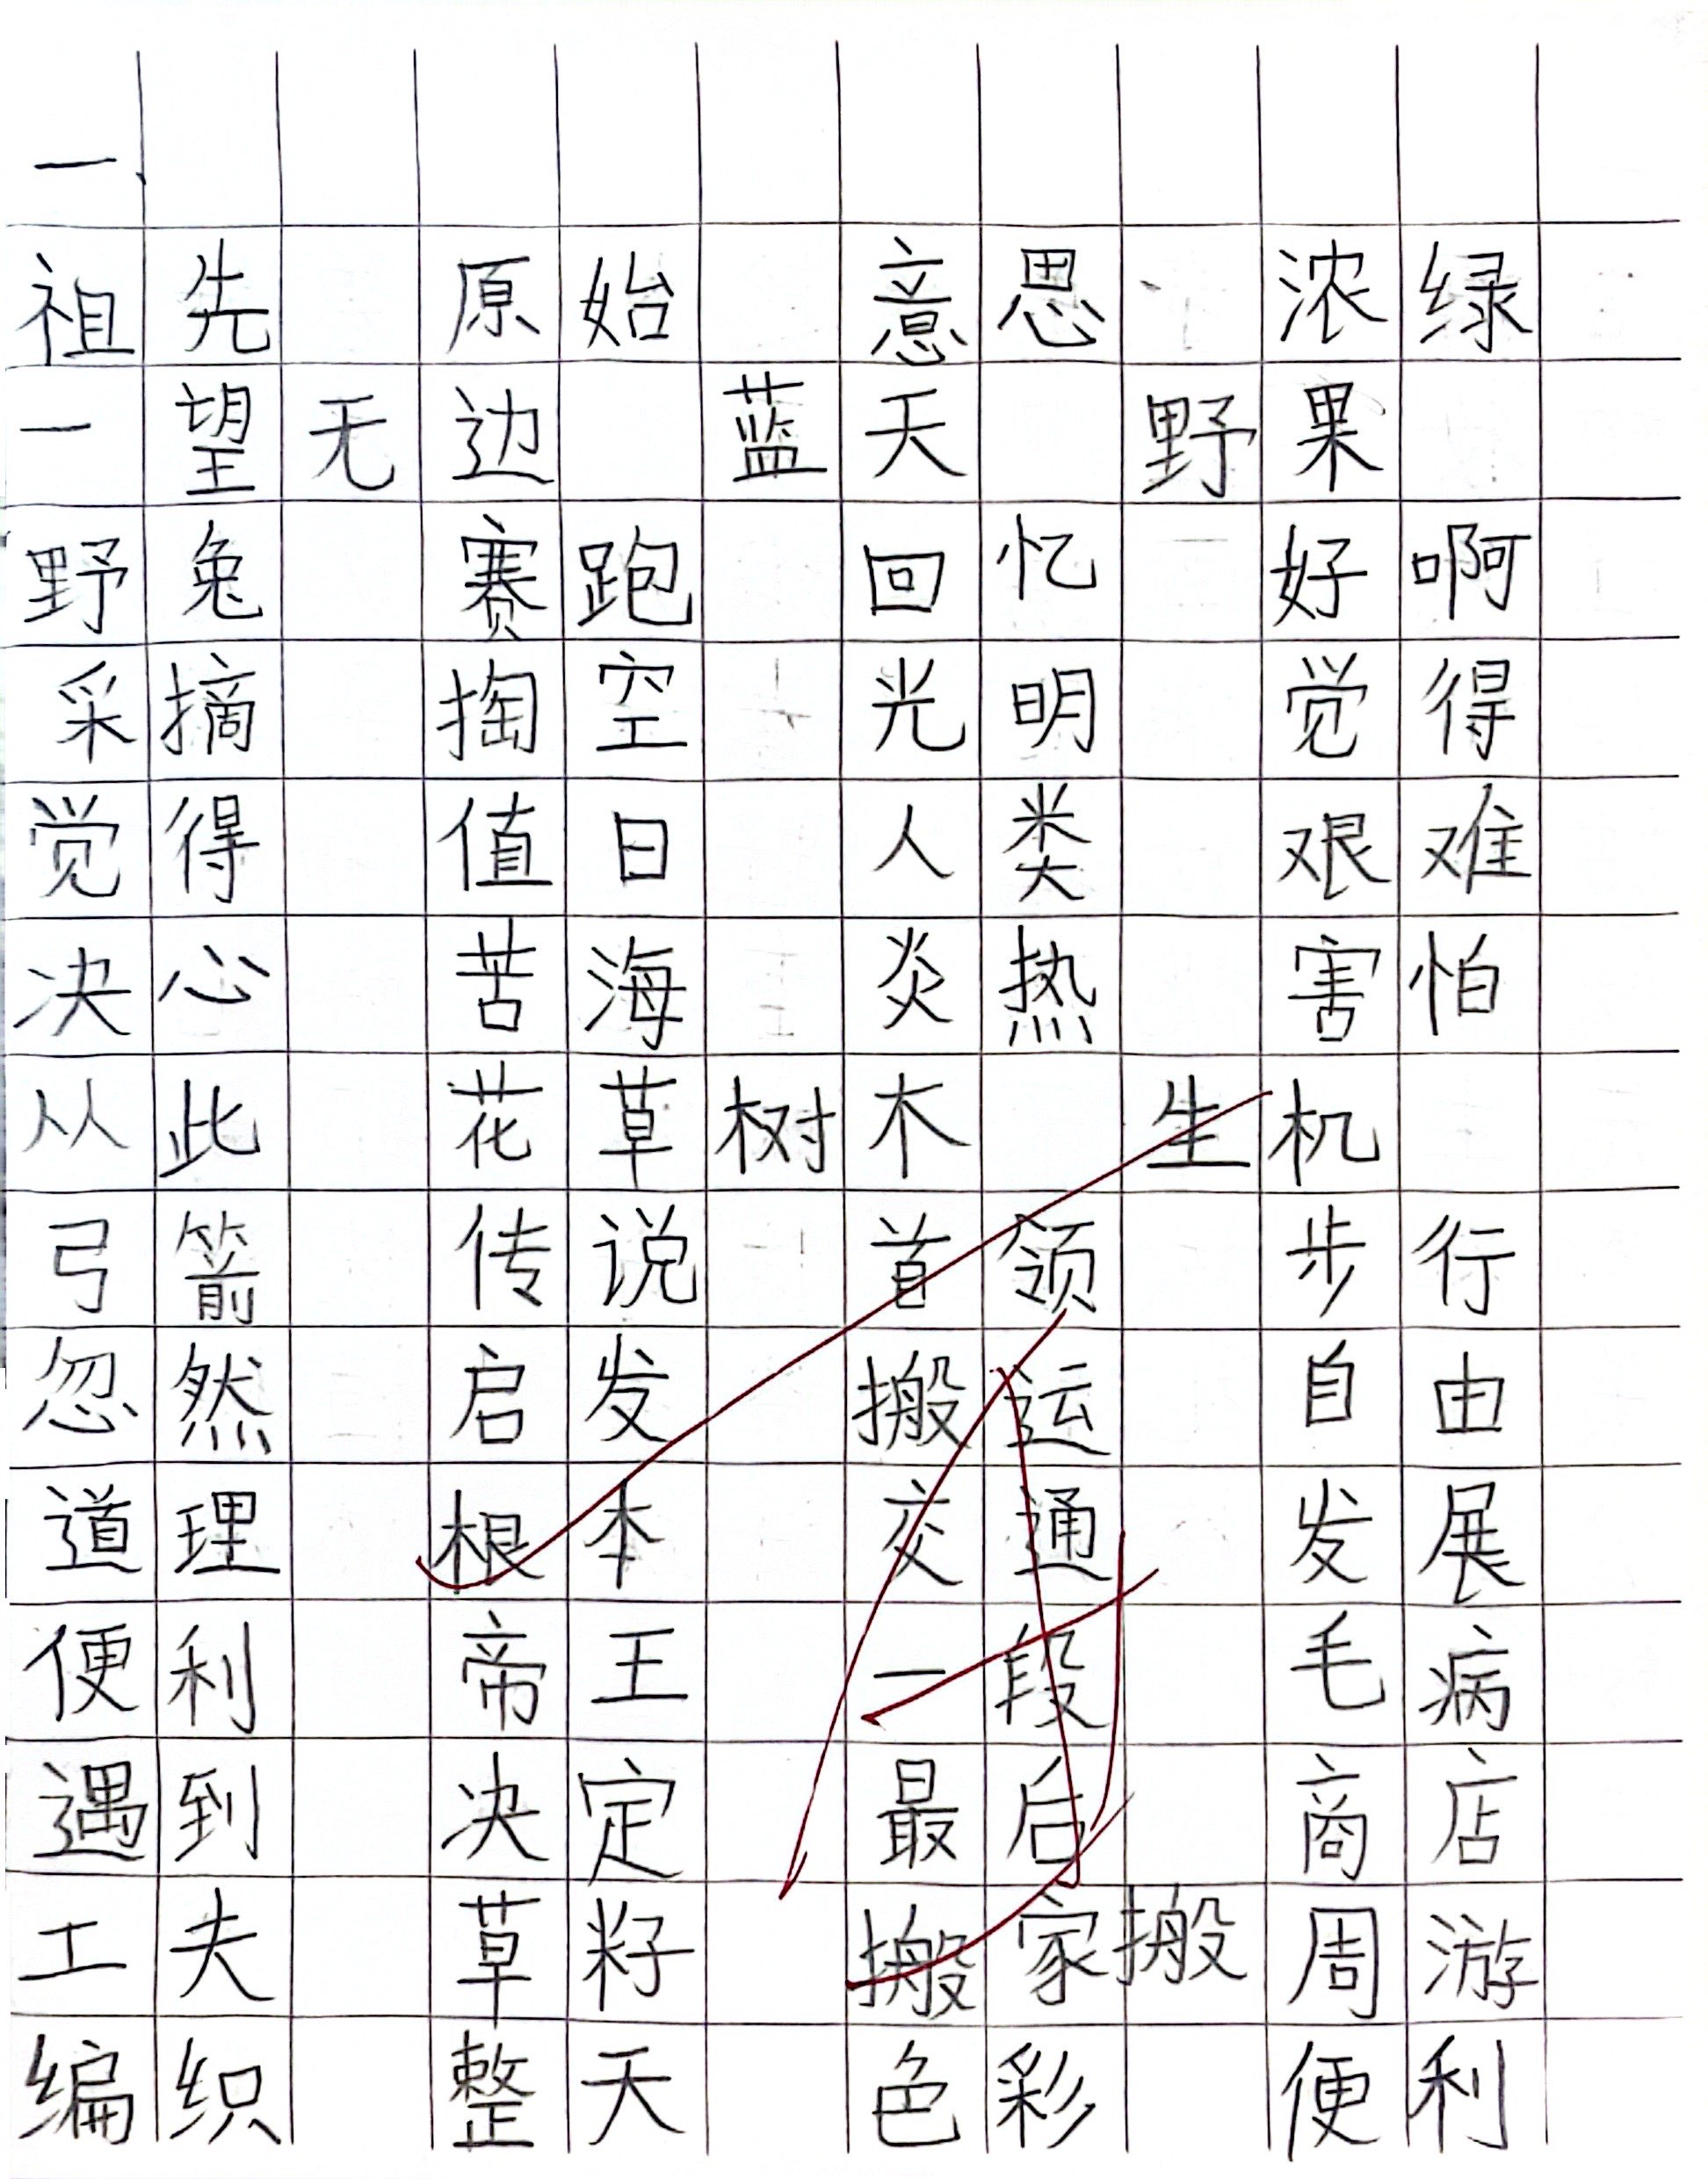 一、
祖先 原始 意思 浓绿
一望无边 蓝天 野果
野兔 赛跑 回忆 好啊
采摘 掏空 光明 觉得
觉得 值日 人类 艰难
决心 苦海 炎热 害怕
从此 花草树木 生机
弓箭 传说 首领 步行
忽然 启发 搬运 自由
道理 根本 交通 发展
便利 帝王 一段 毛病
遇到 决定 最后 商店
工夫 草籽 搬家搬 周游
编织 整天 色彩 便利